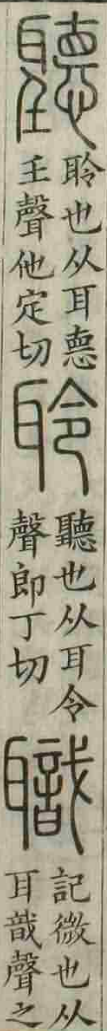 聽聆也从耳㥁
𡈼聲他定切
聆聽也从耳令
聲郎丁切
職記微也从
耳戠聲之